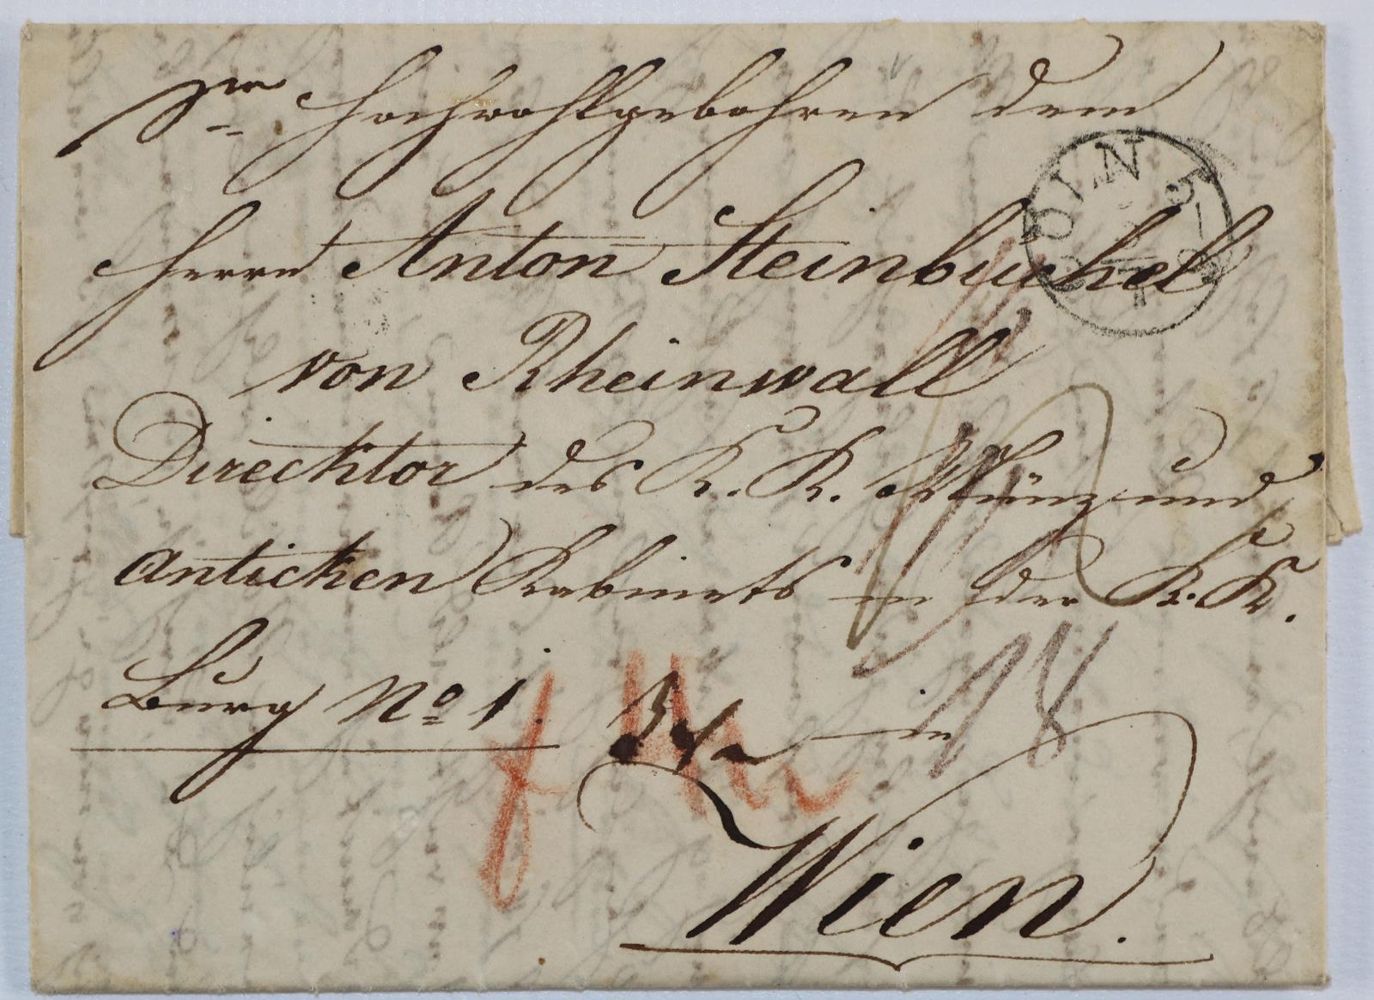 Sr Hochwohlgebohren dem
Herrn Anton Steinbuchel
von Rheinwall
Direcktor des K. K. Münz und
Anticken Kabinets in der K. K.
Burg No 1.
in
18
Wien.